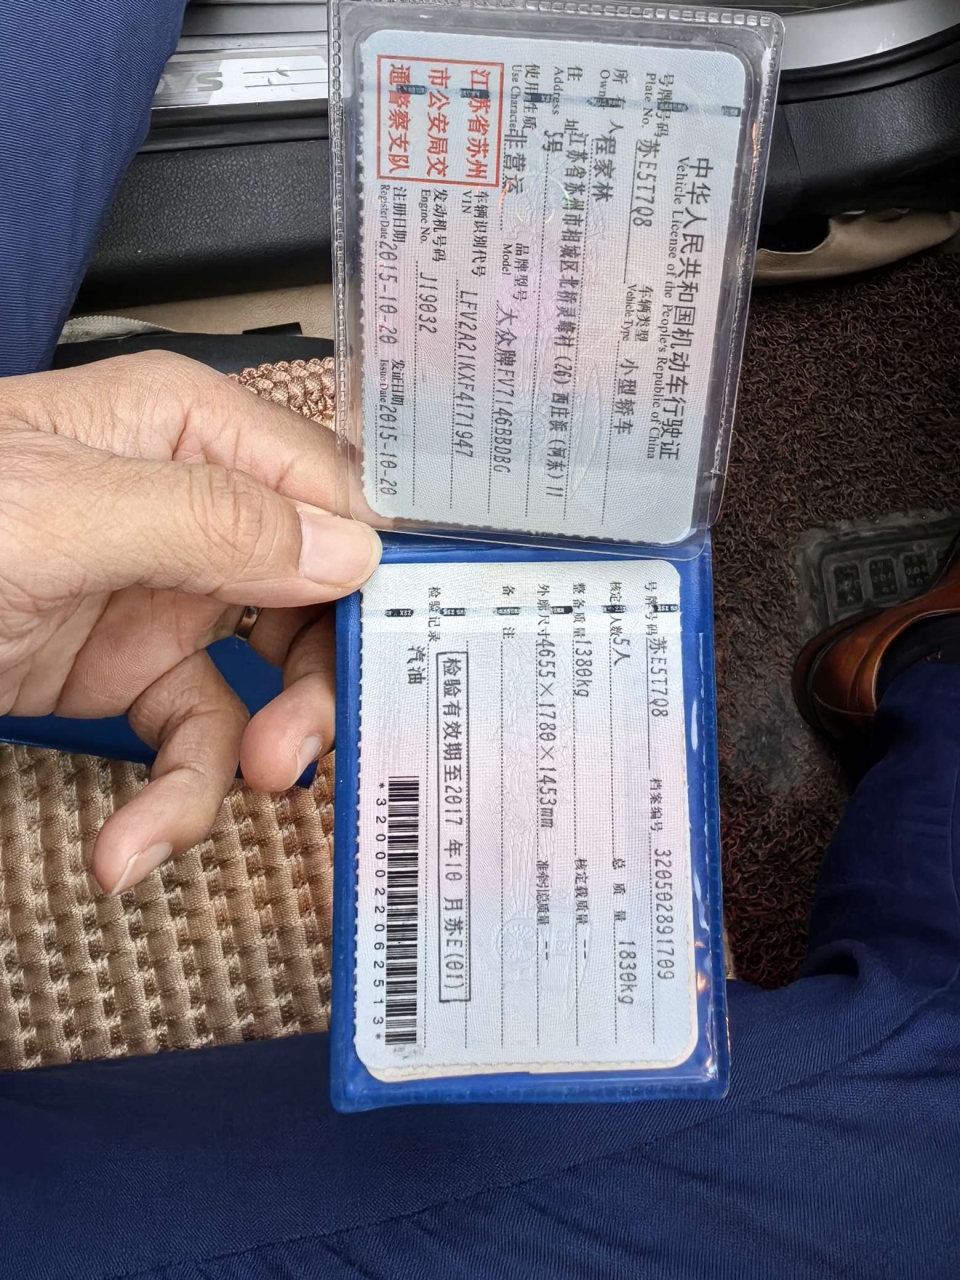 中华人民共和国机动车行驶证
Vehicle License of the People's Republic of China
号牌号码 苏E5T7Q8 车辆类型 小型轿车
Plate No. Vehicle Type
所有人 程家林
Owner
住址 江苏省苏州市相城区北桥灵峰村(26)西庄浜(河东)11
Address 5号
使用性质 非营运 品牌型号 大众牌FV7146BBDBG
Use Character Model
江苏省苏州
市公安局交
通警察支队
车辆识别代号 LFV2A21KXF4171947
VIN
发动机号码 J19032
Engine No.
注册日期 2015-10-20 发证日期 2015-10-20
Register Date Issue Date
号牌号码 苏E5T7Q8 档案编号 320502891709
核定人数 5人 总质量 1830kg
整备质量 1380kg 核定载质量 --
外廓尺寸 4655×1780×1453mm 准牵引总质量 --
备注
检验有效期至2017 年10 月苏E(01)
检验记录
汽油
*3200022062513*